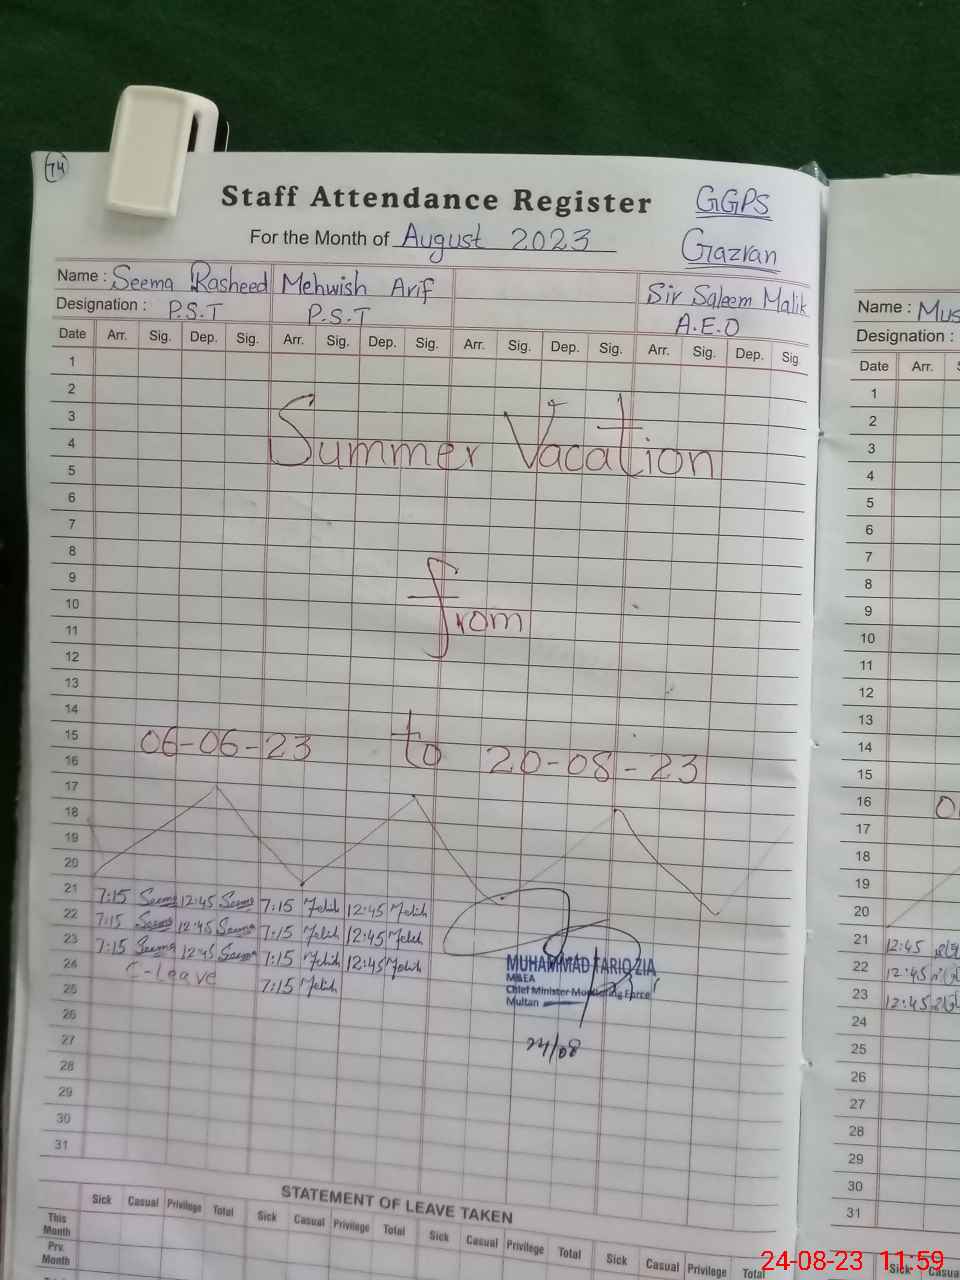 74
Staff Attendance Register
GGPS
For the Month of August 2023
Gazran
Name : Seema Rasheed Mehwish Arif Sir Saleem Malik
Designation : P.S.T P.S.T A.E.O
Date Arr. Sig. Dep. Sig. Arr. Sig. Dep. Sig. Arr. Sig. Dep. Sig. Arr. Sig. Dep. Sig.
1
2
3
Summer Vacation
4
5
6
7
8
9
10
from
11
12
13
14
15
06-06-23 to 20-08-23
16
17
18
19
20
21 7:15 Seema 12:45 Seema 7:15 12:45
22 7:15 Seema 12:45 Seema 7:15 12:45
23 7:15 Seema 12:45 Seema 7:15 12:45
24 C-Leave 7:15
25
26
27
28
29
30
31
MUHAMMAD TARIQ ZIA
MEA
Chief Minister Monitoring Force
Multan
24/08
STATEMENT OF LEAVE TAKEN
Sick Casual Privilege Total Sick Casual Privilege Total Sick Casual Privilege Total Sick Casual Privilege Total
This Month
Prv. Month
Name : Mus
Designation :
Date Arr.
1
2
3
4
5
6
7
8
9
10
11
12
13
14
15
16
17
18
19
20
21 12:45
22 12:45
23 12:45
24
25
26
27
28
29
30
31
Sick Casua
24-08-23 11:59